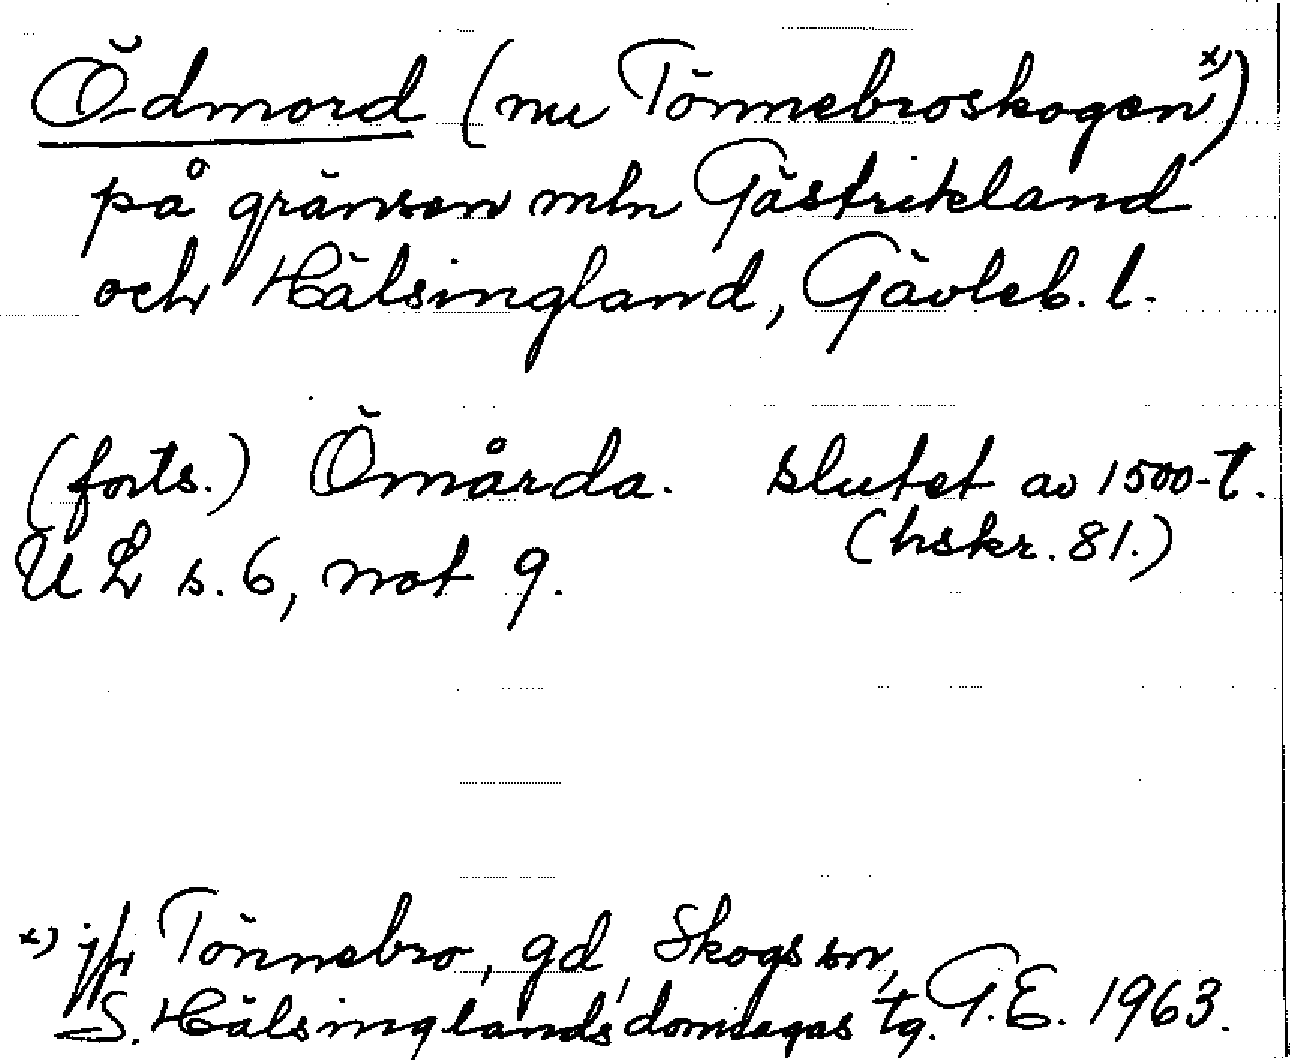 Ödmord (nu Tönnebroskogen x))
på gränsen mln Gästrikland
och Hälsingland, Gävleb. l.
(forts.) Ömårda. slutet av 1500-t.
(hskr. 81.)
UL s. 6, not 9.
x) jfr Tönnebro, gd, Skogs sn,
S. Hälsinglands domsagas tg. G.E. 1963.